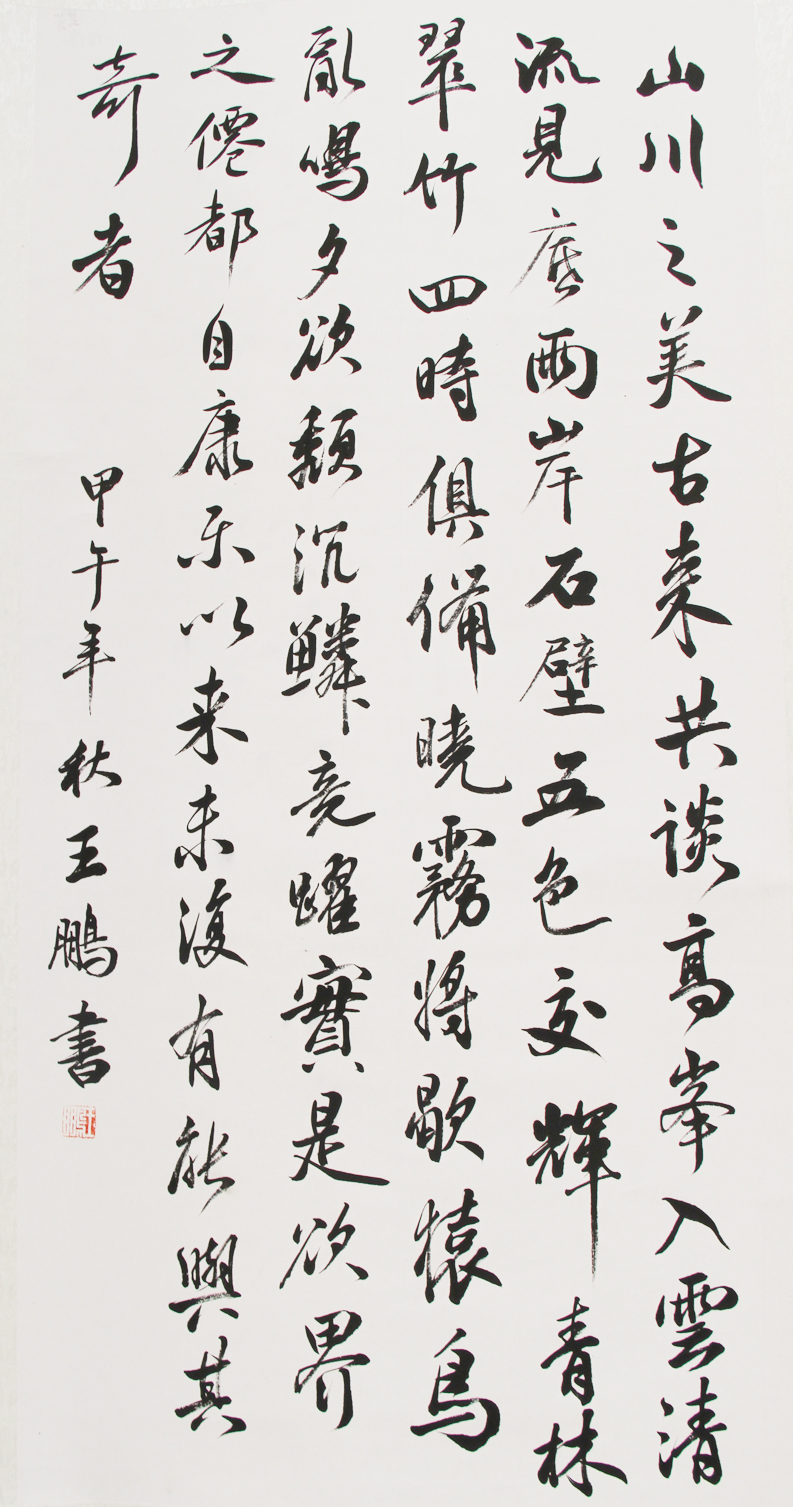 山川之美古來共談高峯入雲清
流見底兩岸石壁五色交輝青林
翠竹四時俱備曉霧將歇猿鳥
亂鳴夕欲頹沉鱗竞躍實是欲界
之僊都自康樂以来未復有能與其
奇者
甲午年秋王鵬書